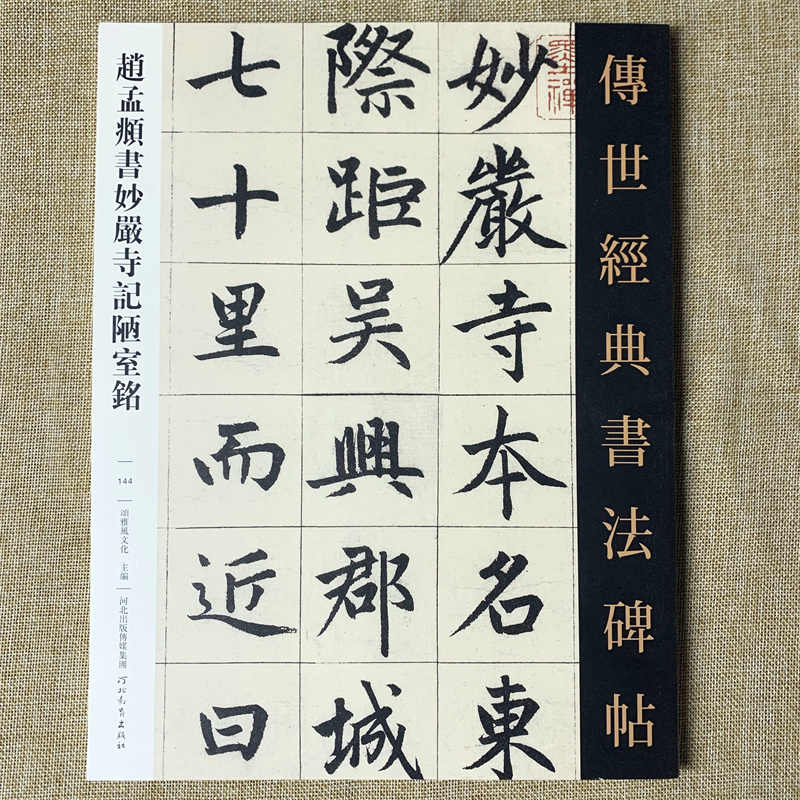 傳世經典書法碑帖
妙嚴寺本名東
際距吴興郡城
七十里而近曰
趙孟頫書妙嚴寺記陋室銘
144
頌雅風文化 主編
河北出版傳媒集團
河北教育出版社